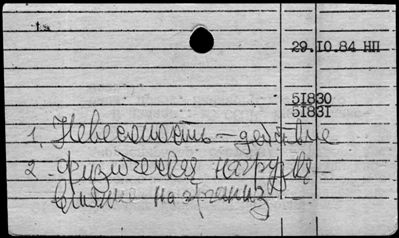 29.10.84 НП
51830
51831
1. Невесомость – действие
2. Физическая нагрузка –
влияние на организ